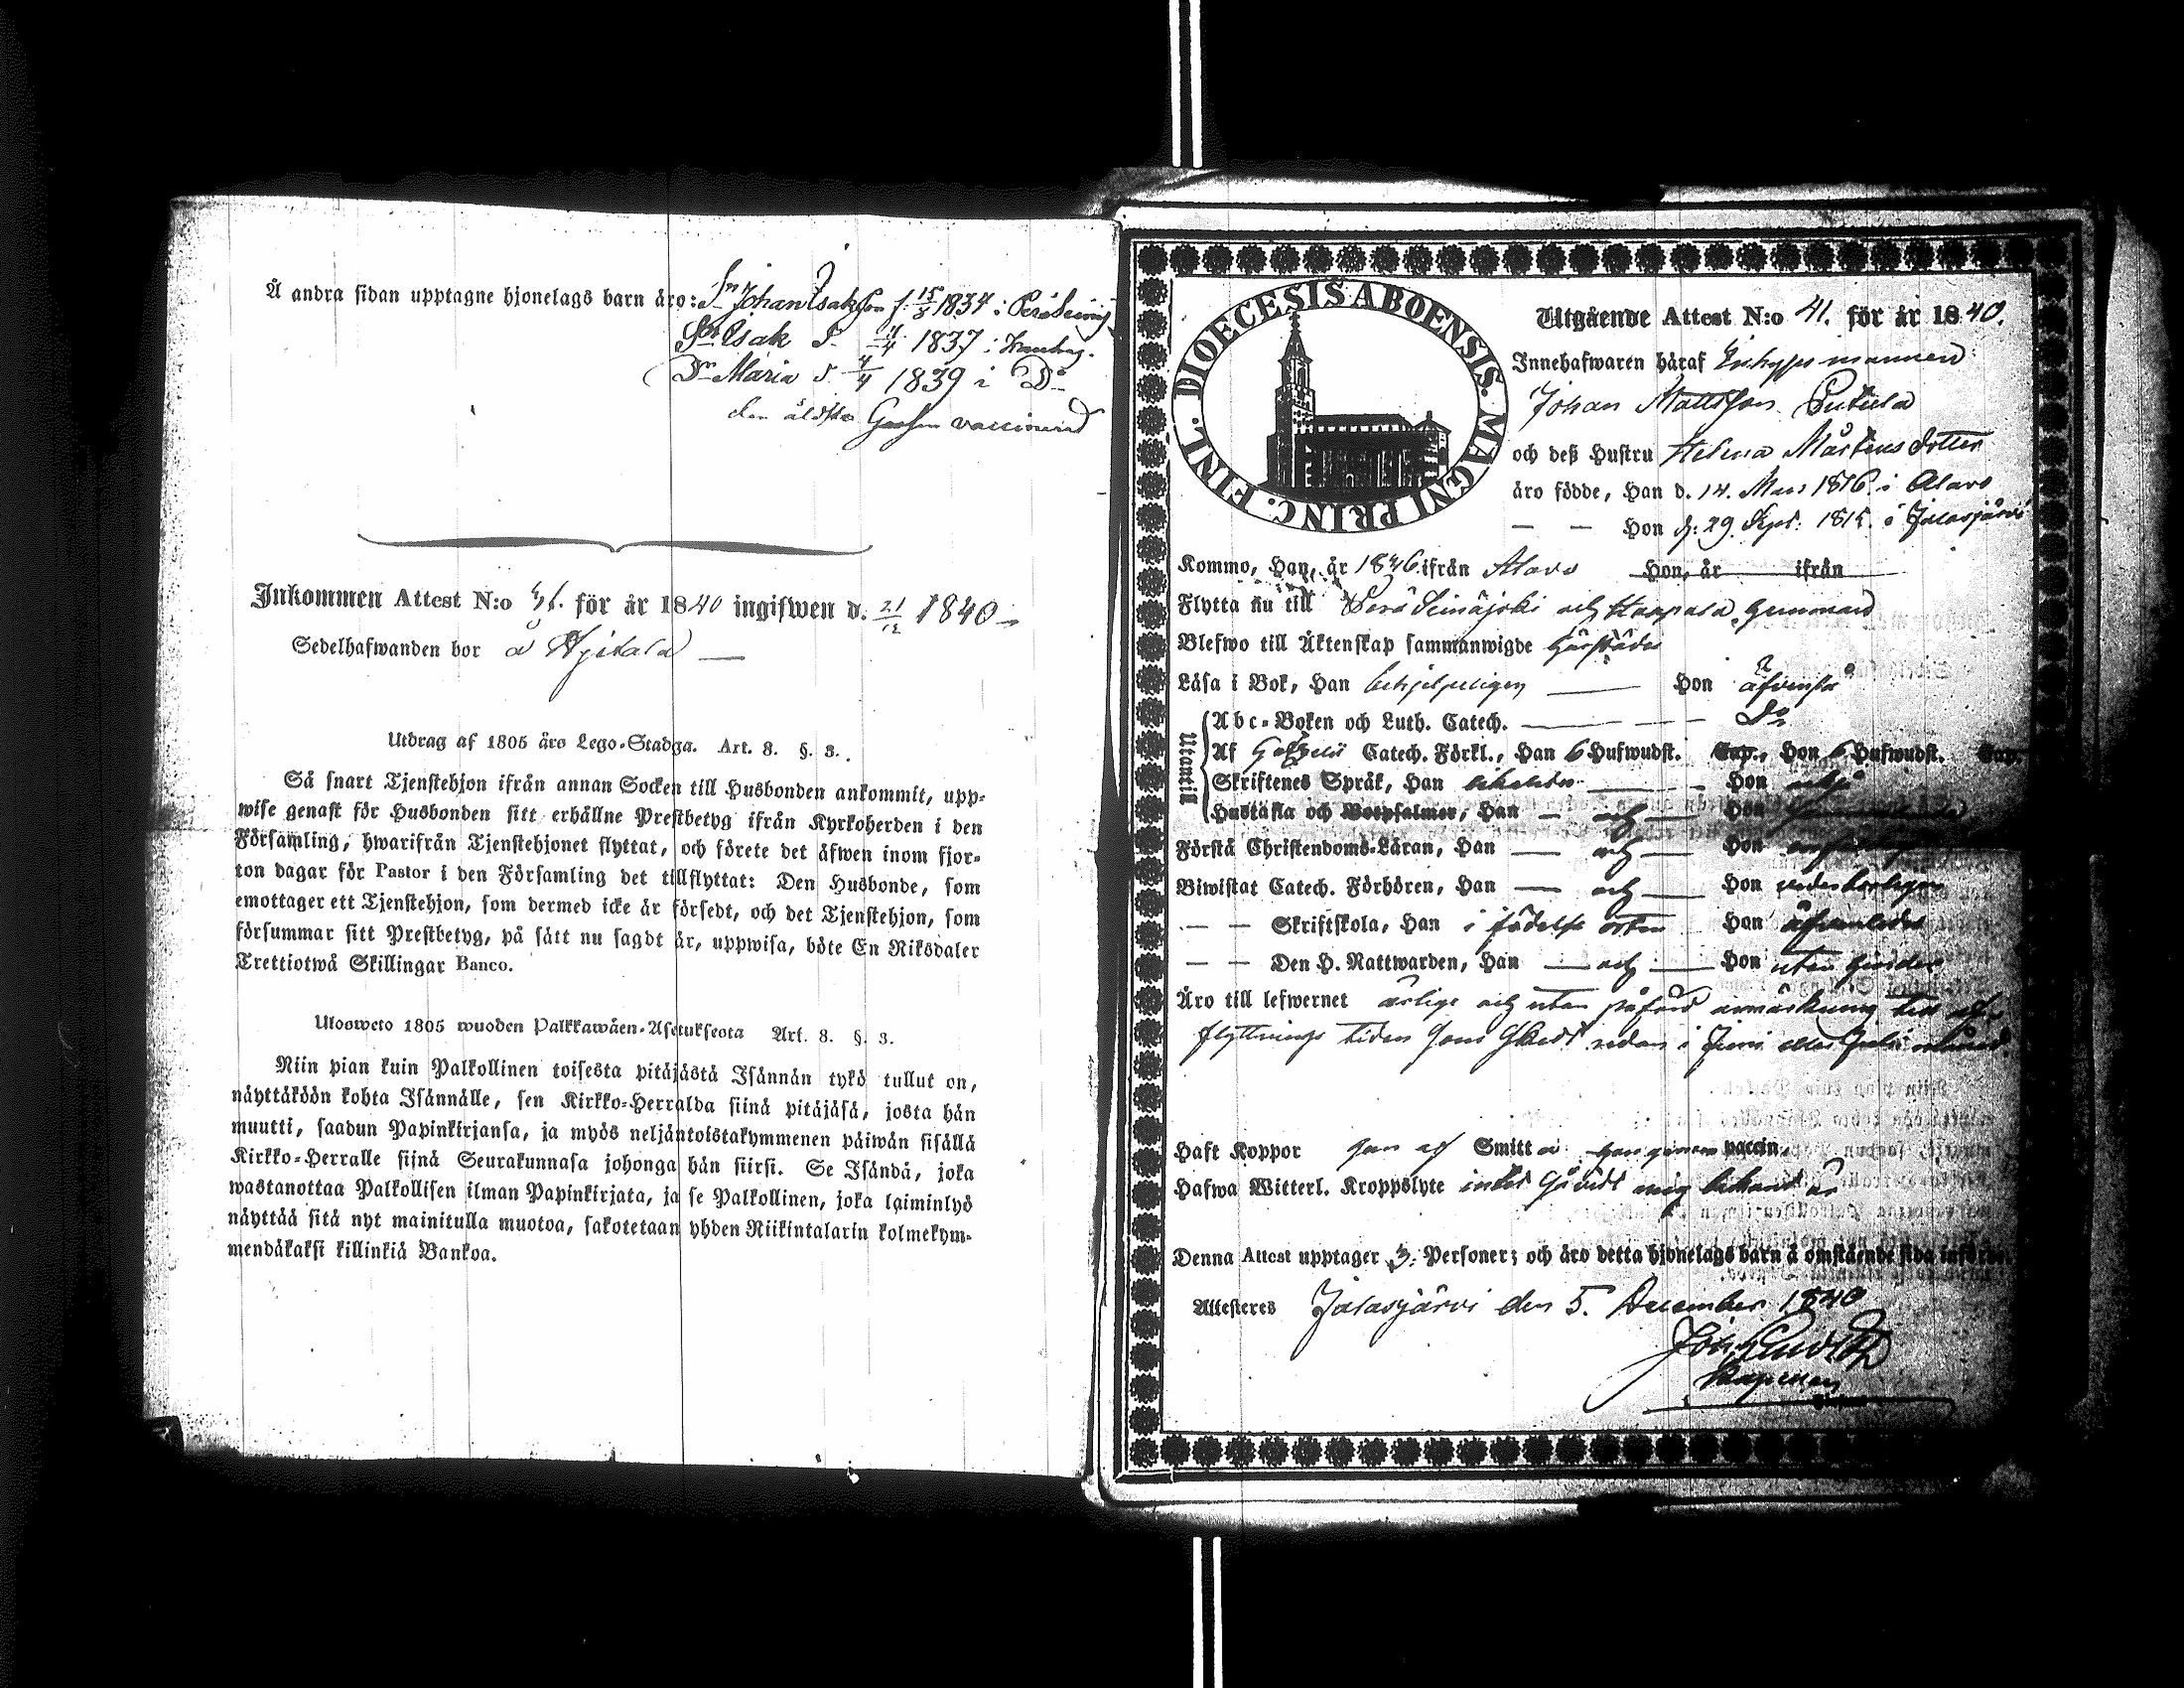 Å andra sidan upptagne hjonelags barn äro: Sn Johan Isaksson f. 15/8 1834 i
Sn Isak d. 4/4 1837 i
Dr Maria d. 4/4 1839 i Do
den äldsta vaccinerad
Inkommen Attest N:o 41. för år 1840 ingifwen d. 21/12 1840
Sedelhafwanden bor å
Utdrag af 1805 års Lego-Stadga. Art. 8. §. 3.
Så snart Tjenstehjon ifrån annan Socken till Husbonden ankommit, upp-
wise genast för Husbonden sitt erhållne Prestbetyg ifrån Kyrkoherden i den
Församling, hwarifrån Tjenstehjonet flyttat, och förete det äfwen inom fjor-
ton dagar för Pastor i den Församling det tillflyttat: Den Husbonde, som
emottager ett Tjenstehjon, som dermed icke är försedt, och det Tjenstehjon, som
försummar sitt Prestbetyg, på sätt nu sagdt är, uppwisa, böte En Riksdaler
Trettiotwå Skillingar Banco.
Ulosweto 1805 wuoden Palkkawäen-Asetuksesta Art. 8. §. 3.
Niin pian kuin Palkollinen toisesta pitäjästä Isännän tykö tullut on,
näyttäköön kohta Isännälle, sen Kirkko-Herralda siinä pitäjäsä, josta hän
muutti, saadun Papinkirjansa, ja myös neljäntoistakymmenen päiwän sisällä
Kirkko-Herralle siinä Seurakunnasa johonga hän siirsi. Se Isändä, joka
wastanottaa Palkollisen ilman Papinkirjata, ja se Palkollinen, joka laiminlyö
näyttää sitä nyt mainitulla muotoa, sakotetaan yhden Riikintalarin kolmekym-
mendäkaksi killinkiä Bankoa.
DIOECESIS ABOENSIS. MAGNI PRINC. FINL.
Utgående Attest N:o 41. för år 1840.
Innehafwaren häraf Inhyses mannen
Johan Mattsson
och deß Hustru Helena Mårtens dotter
äro födde, Han d. 14. Mars 1816 i Alavo
— — Hon d. 29 Sept. 1815. i Jalasjärvi
Kommo, Han, år ifrån Alavo Hon, år ifrån
Flytta nu till Perä Seinäjoki och
Blefwo till Äktenskap sammanwigde härstädes
Läsa i Bok, Han behjelpeligen — Hon äfvenså
Utantill
Abc-Boken och Luth. Catech. — — — Do
Af Catech. Förkl., Han 6 Hufwudst. Cap., Hon 6 Hufwudst. Cap.
Skriftenes Språk, Han — Hon
Hustafla och Botpsalmer, Han — och — Hon
Första Christendoms-Läran, Han — och — Hon
Biwistat Catech. Förhören, Han — och — Hon vederbörligen
— — Skriftskola, Han i födelse orten Hon äfvenledes
— — Den H. Nattwarden, Han — och — Hon utan hinder
Äro till lefwernet ärlige och utan påförd anmärkning till af-
flyttnings tiden som skedt redan i Juni eller Juli månad.
Haft Koppor han af Smitta hon genom vaccin.
Hafwa Witterl. Kroppslyte intet så vidt mig bekant är
Denna Attest upptager 3. Personer; och äro detta hjonelags barn å omstående sida införde.
Attesteres Jalasjärvi den 5. December 1840
Kapellan